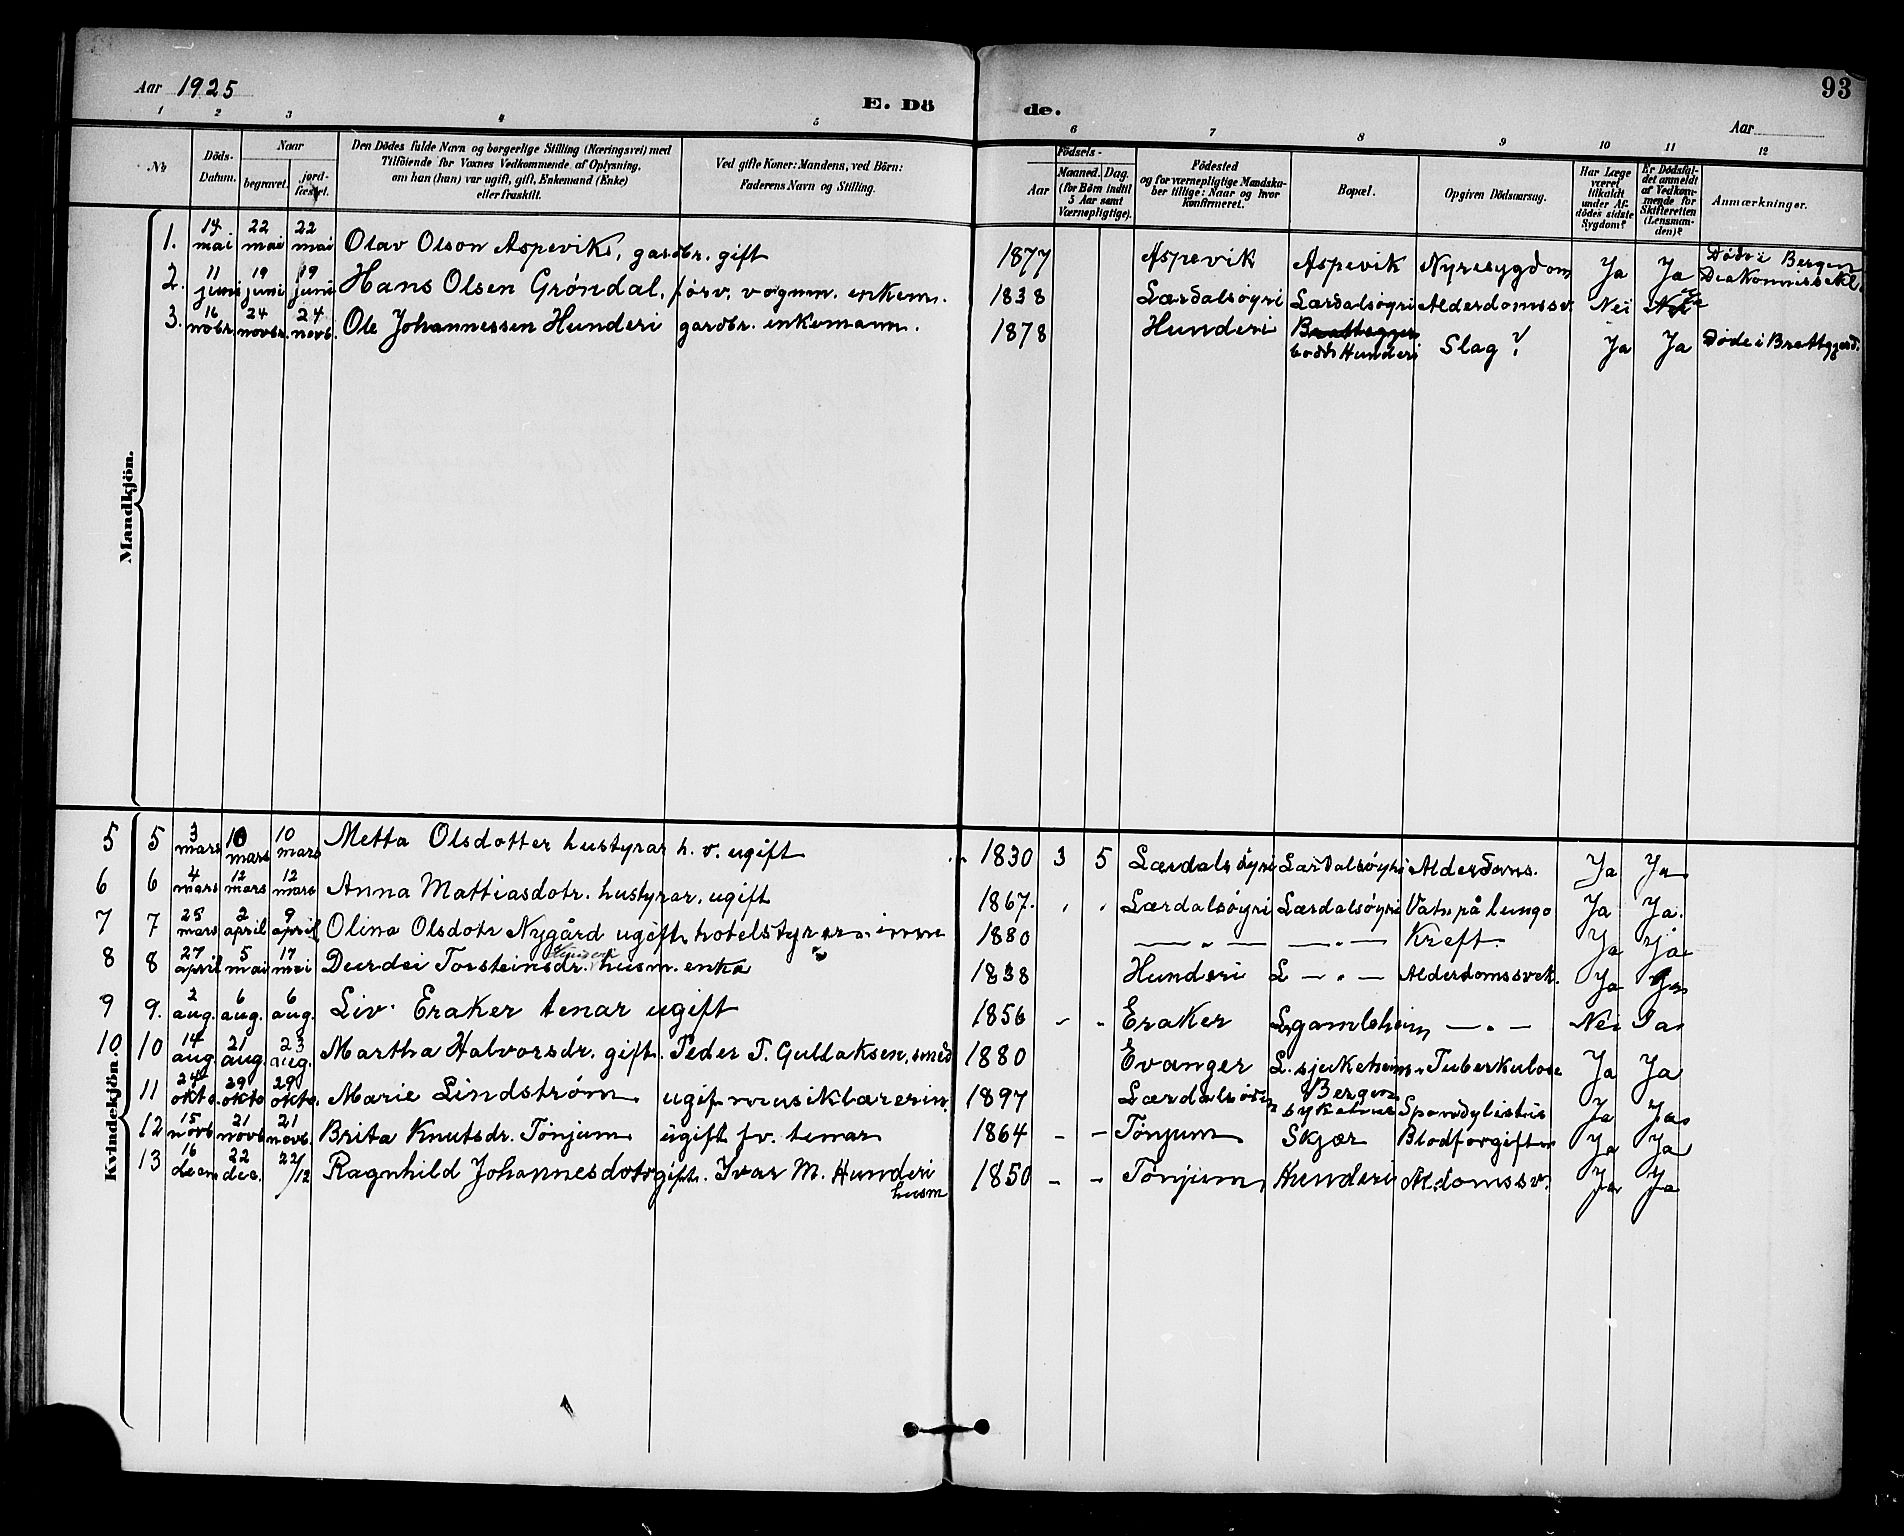 Aar 1925
E. Dö
de.
93
Aar
1 2 3 4 5 6 7 8 9 10 11 12
No.
Döds-Datum.
Naar
begravet.
jord-fæstet.
Den Dödes fulde Navn og borgerlige Stilling (Næringsvei) med
Tilföiende for Voxnes Vedkommende af Oplysning,
om han (hun) var ugift, gift, Enkemand (Enke)
eller fraskilt.
Ved gifte Koner: Mandens, ved Börn:
Faderens Navn og Stilling.
Födsels-
Aar
Maaned. Dag.
(for Börn indtil
5 Aar samt
Værnepligtige).
Födested
og for værnepligtige Mandska-
ber tillige: Naar og hvor
konfirmeret.
Bopæl.
Opgiven Dödsaarsag.
Har Læge
været
tilkaldt
under Af-
dödes sidste
Sygdom?
Er Dödsfal-
det anmeldt
af Vedkom-
mende for
Skifteretten
(Lensman-
den)?
Anmærkninger.
Mandkjön.
1. 14 mai 22 mai 22 mai Olav Olson Aspevik, gardbr. gift 1877 Aspevik Aspevik Nyresygdom Ja Ja Döde i Bergen
2. 11 juni 19 juni 19 juni Hans Olsen Grøndal, forv. vognm. enkem. 1838 Lærdalsøyri Lærdalsøyri Alderdomssv. Nei
3. 16 nobr. 24 novbr. 24 novb. Ole Johannessen Hunderi gardbr. enkemann. 1878 Hunderi Hunderi Slag? Ja Ja Döde i Brattegjerd.
Kvindekjön.
5 5 3 mars 10 mars 10 mars Metta Olsdotter hustyrar h. v. ugift 1830 3 5 Lærdalsöyri Lærdalsøyri Alderdoms. Ja Ja
6 6 4 mars 12 mars 12 mars Anna Mattiasdotr. hustyrar, ugift 1867. Lærdalsøyri Lærdalsøyri Vatn på lungo Ja Ja.
7 7 25 mars 2 april 9 april Olina Olsdotr Nygård ugift hotelstyrar inne 1880 — " — — " — Kreft Ja ja
8 8 27 april 5 mai 17 mai Durdei Torsteinsdr. husm. enka 1838 Hunderi L — " — Alderdomssvek. Ja Ja
9 9. 2 aug. 6 aug. 6 aug. Liv Eraker tenar ugift 1856 - - Eraker L. gamleheim — " — Nei Ja
10 10 14 aug 21 aug. 23 aug. Martha Halvorsdr. gift. Peder T. Gullaksen, smed 1880 Evanger L. sjukeheim Tuberkulose Ja Ja
11 24 okto. 29 okto 29 okto. Marie Lindstrøm ugift musiklærerin. 1897 Lærdalsören Bergen sykehus Spondylistis Ja Ja
12 15 novb 21 novb 21 novb. Brita Knutsdr. Tönjum ugift fv. tenar 1864 - - Tönjum Skjær Blodforgiftn Ja Ja
13 16 decm 22 dec. 22/12 Ragnhild Johannesdotr gift. Ivar M. Hunderi 1850 - - Tönjum Hunderi Ald.domssv. Ja Ja
husm